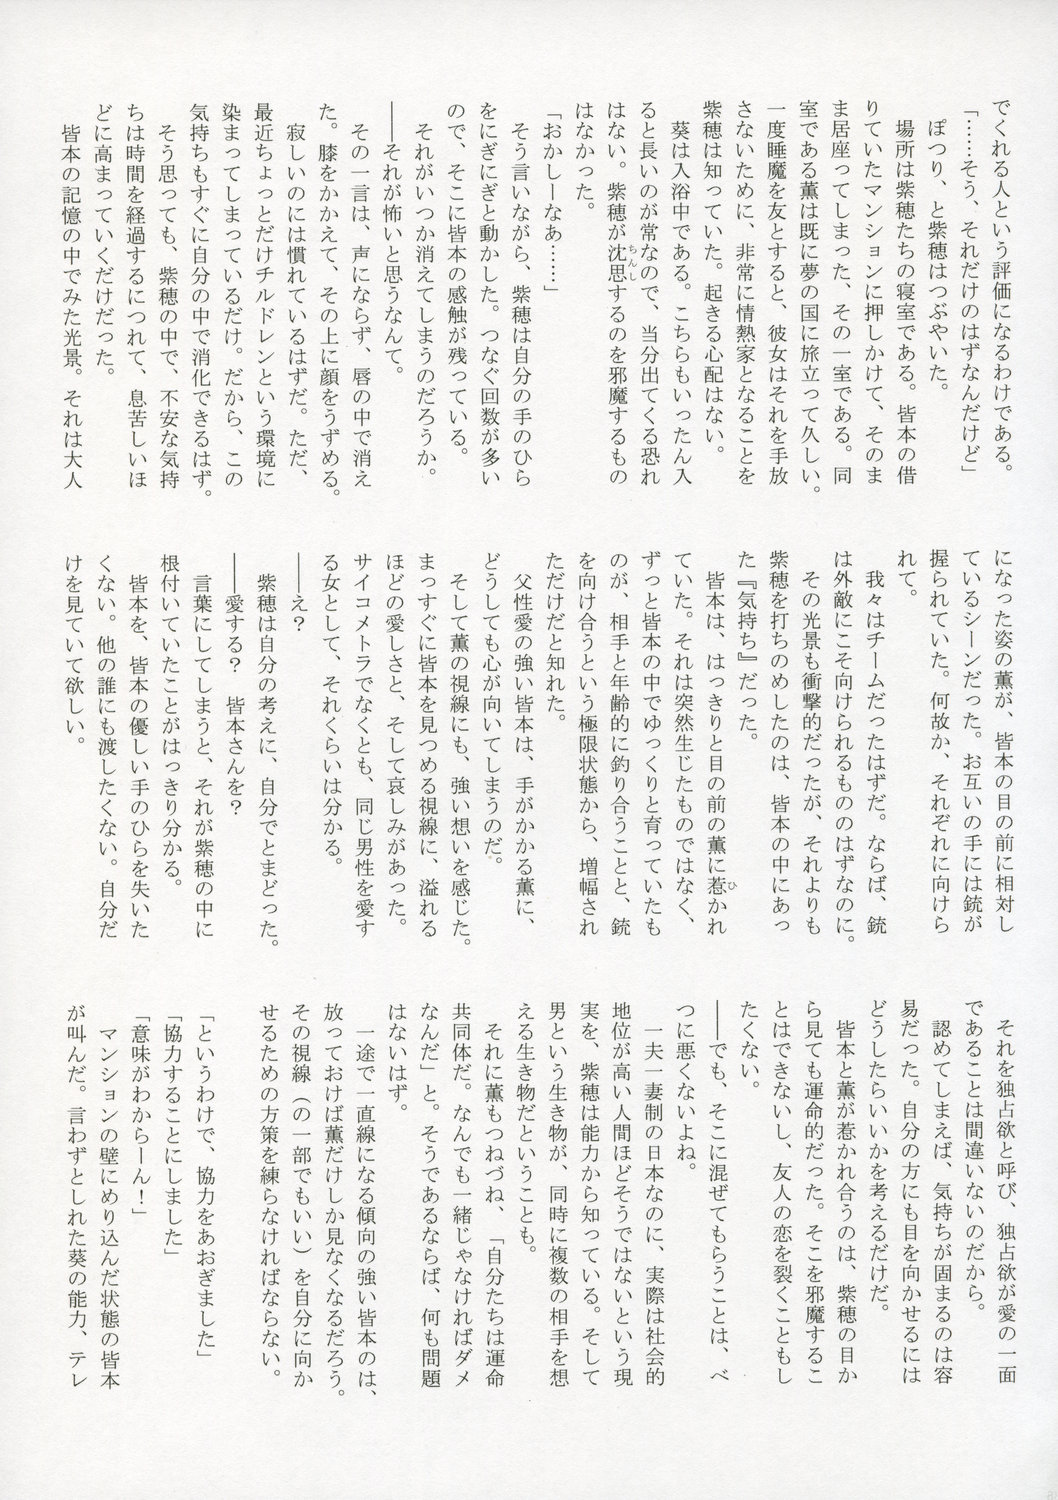 でくれる人という評価になるわけである。
「……そう、それだけのはずなんだけど」
ぽつり、と紫穂はつぶやいた。
場所は紫穂たちの寝室である。皆本の借
りていたマンションに押しかけて、そのま
ま居座ってしまった、その一室である。同
室である薫は既に夢の国に旅立って久しい。
一度睡魔を友とすると、彼女はそれを手放
さないために、非常に情熱家となることを
紫穂は知っていた。起きる心配はない。
葵は入浴中である。こちらもいったん入
ると長いのが常なので、当分出てくる恐れ
はない。紫穂が沈思するのを邪魔するもの
はなかった。
「おかしーなあ……」
そう言いながら、紫穂は自分の手のひら
をにぎにぎと動かした。つなぐ回数が多い
ので、そこに皆本の感触が残っている。
それがいつか消えてしまうのだろうか。
――それが怖いと思うなんて。
その一言は、声にならず、唇の中で消え
た。膝をかかえて、その上に顔をうずめる。
寂しいのには慣れているはずだ。ただ、
最近ちょっとだけチルドレンという環境に
染まってしまっているだけ。だから、この
気持ちもすぐに自分の中で消化できるはず。
そう思っても、紫穂の中で、不安な気持
ちは時間を経過するにつれて、息苦しいほ
どに高まっていくだけだった。
皆本の記憶の中でみた光景。それは大人
になった姿の薫が、皆本の目の前に相対し
ているシーンだった。お互いの手には銃が
握られていた。何故か、それぞれに向けら
れて。
我々はチームだったはずだ。ならば、銃
は外敵にこそ向けられるもののはずなのに。
その光景も衝撃的だったが、それよりも
紫穂を打ちのめしたのは、皆本の中にあっ
た『気持ち』だった。
皆本は、はっきりと目の前の薫に惹かれ
ていた。それは突然生じたものではなく、
ずっと皆本の中でゆっくりと育っていたも
のが、相手と年齢的に釣り合うことと、銃
を向け合うという極限状態から、増幅され
ただけだと知れた。
父性愛の強い皆本は、手がかかる薫に、
どうしても心が向いてしまうのだ。
そして薫の視線にも、強い想いを感じた。
まっすぐに皆本を見つめる視線に、溢れる
ほどの愛しさと、そして哀しみがあった。
サイコメトラでなくとも、同じ男性を愛す
る女として、それくらいは分かる。
――え？
紫穂は自分の考えに、自分でとまどった。
――愛する？　皆本さんを？
言葉にしてしまうと、それが紫穂の中に
根付いていたことがはっきり分かる。
皆本を、皆本の優しい手のひらを失いた
くない。他の誰にも渡したくない。自分だ
けを見ていて欲しい。
それを独占欲と呼び、独占欲が愛の一面
であることは間違いないのだから。
認めてしまえば、気持ちが固まるのは容
易だった。自分の方にも目を向かせるには
どうしたらいいかを考えるだけだ。
皆本と薫が惹かれ合うのは、紫穂の目か
ら見ても運命的だった。そこを邪魔するこ
とはできないし、友人の恋を裂くこともし
たくない。
――でも、そこに混ぜてもらうことは、べ
つに悪くないよね。
一夫一妻制の日本なのに、実際は社会的
地位が高い人間ほどそうではないという現
実を、紫穂は能力から知っている。そして
男という生き物が、同時に複数の相手を想
える生き物だということも。
それに薫もつねづね、「自分たちは運命
共同体だ。なんでも一緒じゃなければダメ
なんだ」と。そうであるならば、何も問題
はないはず。
一途で一直線になる傾向の強い皆本のは、
放っておけば薫だけしか見なくなるだろう。
その視線（の一部でもいい）を自分に向か
せるための方策を練らなければならない。
「というわけで、協力をあおぎました」
「協力することにしました」
「意味がわからーん！」
マンションの壁にめり込んだ状態の皆本
が叫んだ。言わずとしれた葵の能力、テレ